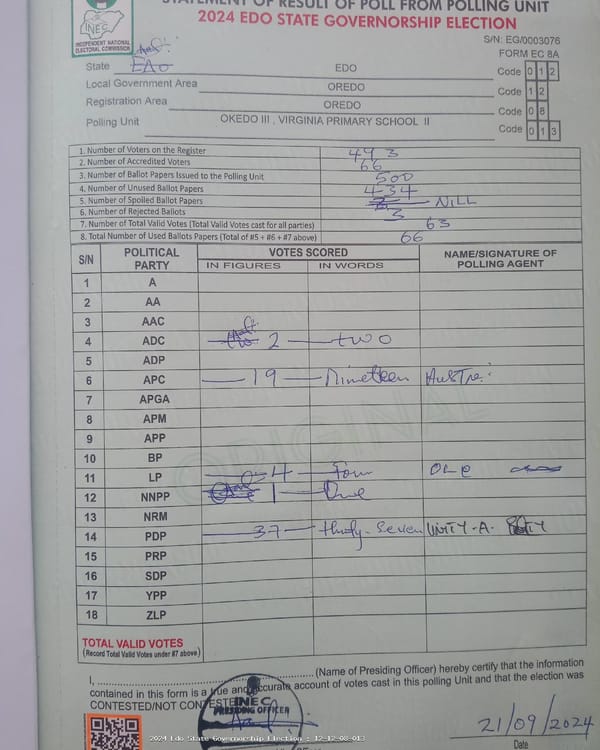 STATEMENT OF RESULT OF POLL FROM POLLING UNIT
2024 EDO STATE GOVERNORSHIP ELECTION
INEC
INDEPENDENT NATIONAL ELECTORAL COMMISSION
S/N: EG/0003076
FORM EC 8A
State EDO Code 0 1 2
Local Government Area OREDO Code 1 2
Registration Area OREDO Code 0 8
Polling Unit OKEDO III , VIRGINIA PRIMARY SCHOOL II Code 0 1 3
1. Number of Voters on the Register 493
2. Number of Accredited Voters 66
3. Number of Ballot Papers Issued to the Polling Unit 500
4. Number of Unused Ballot Papers 434
5. Number of Spoiled Ballot Papers NILL
6. Number of Rejected Ballots 3
7. Number of Total Valid Votes (Total Valid Votes cast for all parties) 63
8. Total Number of Used Ballots Papers (Total of #5 + #6 + #7 above) 66
S/N POLITICAL PARTY VOTES SCORED NAME/SIGNATURE OF POLLING AGENT
IN FIGURES IN WORDS
1 A
2 AA
3 AAC
4 ADC 2 two
5 ADP
6 APC 19 Nineteen
7 APGA
8 APM
9 APP
10 BP
11 LP 4 Four
12 NNPP 1 One
13 NRM
14 PDP 37 thirty-seven UNITY-A.
15 PRP
16 SDP
17 YPP
18 ZLP
ORIGINAL
TOTAL VALID VOTES
(Record Total Valid Votes under #7 above)
I, (Name of Presiding Officer) hereby certify that the information
contained in this form is a true and accurate account of votes cast in this polling Unit and that the election was
CONTESTED/NOT CONTESTED
INEC
PRESIDING OFFICER
21/09/2024
Date
2024 Edo State Governorship Election : 12-12-08-013